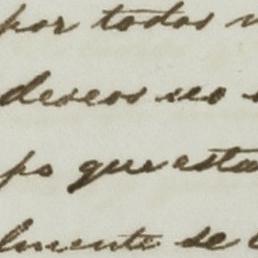 por todos
deseos no
po que esta
lmente se